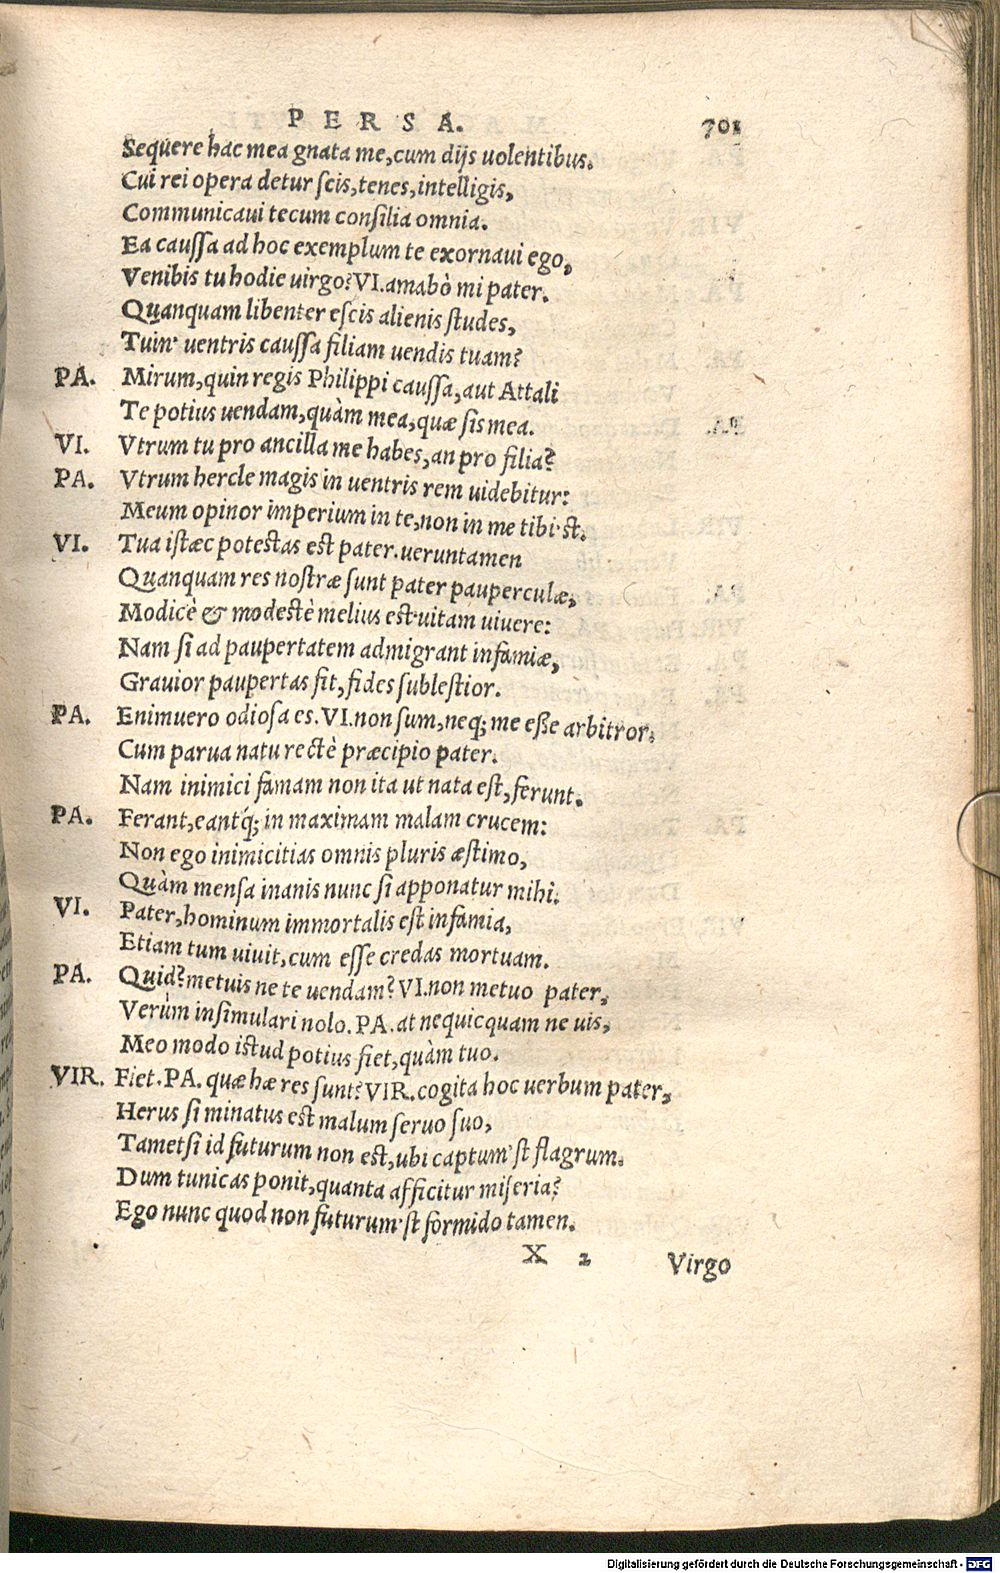 PERSA. 701
Sequere hac mea gnata me, cum dijs uolentibus.
Cui rei opera detur scis, tenes, intelligis,
Communicaui tecum consilia omnia.
Ea caussa ad hoc exemplum te exornaui ego,
Venibis tu hodie uirgo? VI. amabò mi pater.
Quanquam libenter escis alienis studes,
Tuin' uentris caussa filiam uendis tuam?
PA. Mirum, quin regis Philippi caussa, aut Attali
Te potius uendam, quàm mea, quæ sis mea.
VI. Vtrum tu pro ancilla me habes, an pro filia?
PA. Vtrum hercle magis in uentris rem uidebitur:
Meum opinor imperium in te, non in me tibi'st.
VI. Tua istæc potestas est pater. ueruntamen
Quanquam res nostræ sunt pater pauperculæ,
Modicè & modestè melius est uitam uiuere:
Nam si ad paupertatem admigrant infamiæ,
Grauior paupertas fit, fides sublestior.
PA. Enimuero odiosa es. VI. non sum, neq; me eße arbitror.
Cum parua natu rectè præcipio pater.
Nam inimici famam non ita ut nata est, ferunt.
PA. Ferant, eantq́; in maximam malam crucem:
Non ego inimicitias omnis pluris æstimo,
Quàm mensa inanis nunc si apponatur mihi.
VI. Pater, hominum immortalis est infamia,
Etiam tum uiuit, cum esse credas mortuam.
PA. Quid? metuis ne te uendam? VI. non metuo pater,
Verùm insimulari nolo. PA. at nequicquam ne uis,
Meo modo istud potius fiet, quàm tuo.
VIR. Fiet. PA. quæ hæ res sunt? VIR. cogita hoc uerbum pater,
Herus si minatus est malum seruo suo,
Tametsi id futurum non est, ubi captum'st flagrum.
Dum tunicas ponit, quanta afficitur miseria?
Ego nunc quod non futurum'st formido tamen.
X 2 Virgo
Digitalisierung gefördert durch die Deutsche Forschungsgemeinschaft - DFG